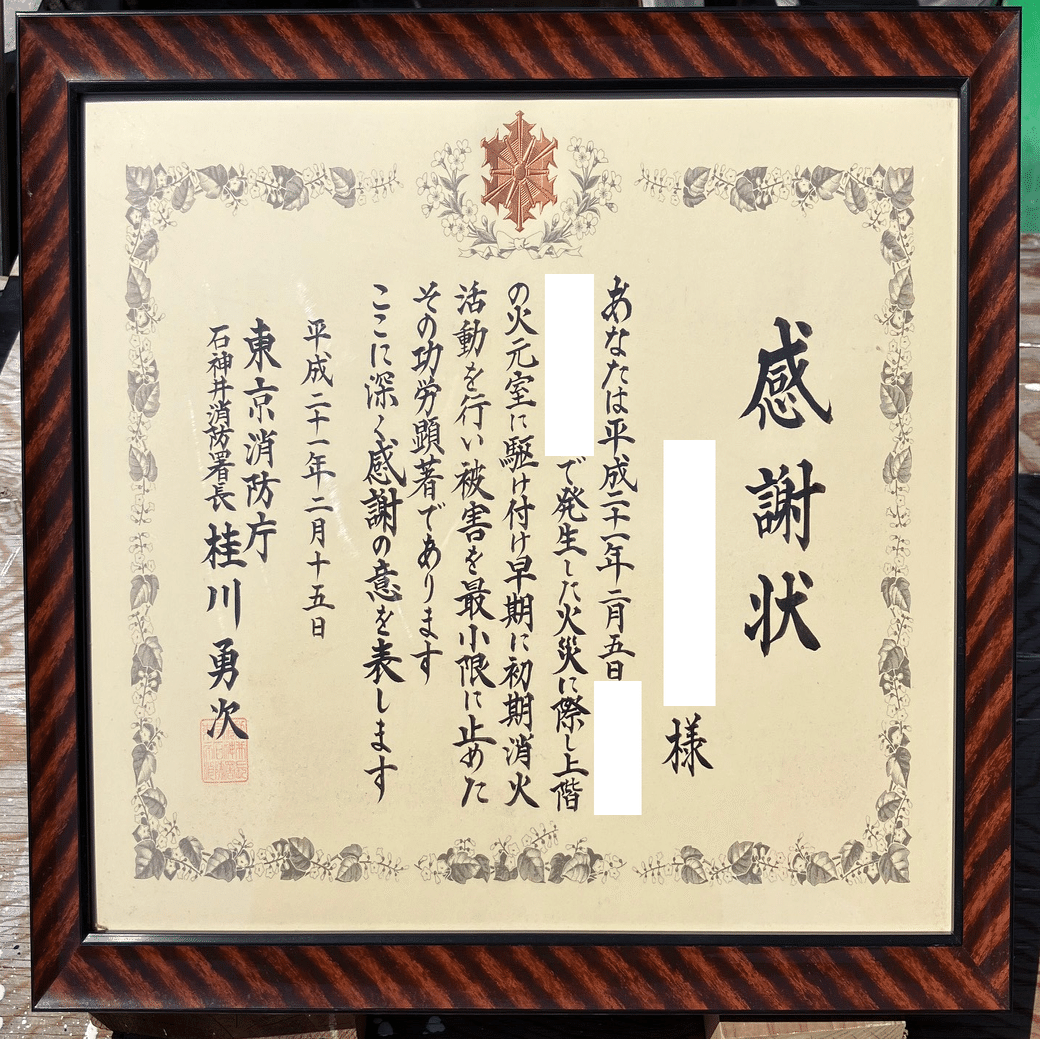 感謝状
様
あなたは平成二十一年二月五日
で発生した火災に際し上階
の火元室に駆け付け早期に初期消火
活動を行い被害を最小限に止めた
その功労顕著であります
ここに深く感謝の意を表します
平成二十一年二月十五日
東京消防庁
石神井消防署長 桂川勇次